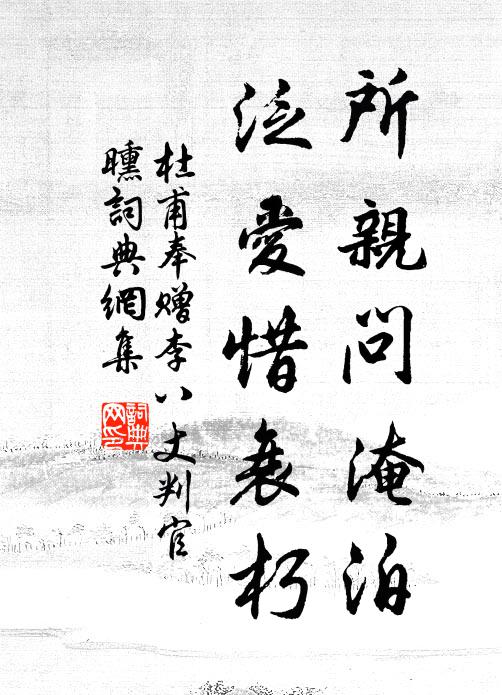 所親問淹泊
泛愛惜衰朽
杜甫奉贈李八丈判官
曛詞典網集
詞典
网印